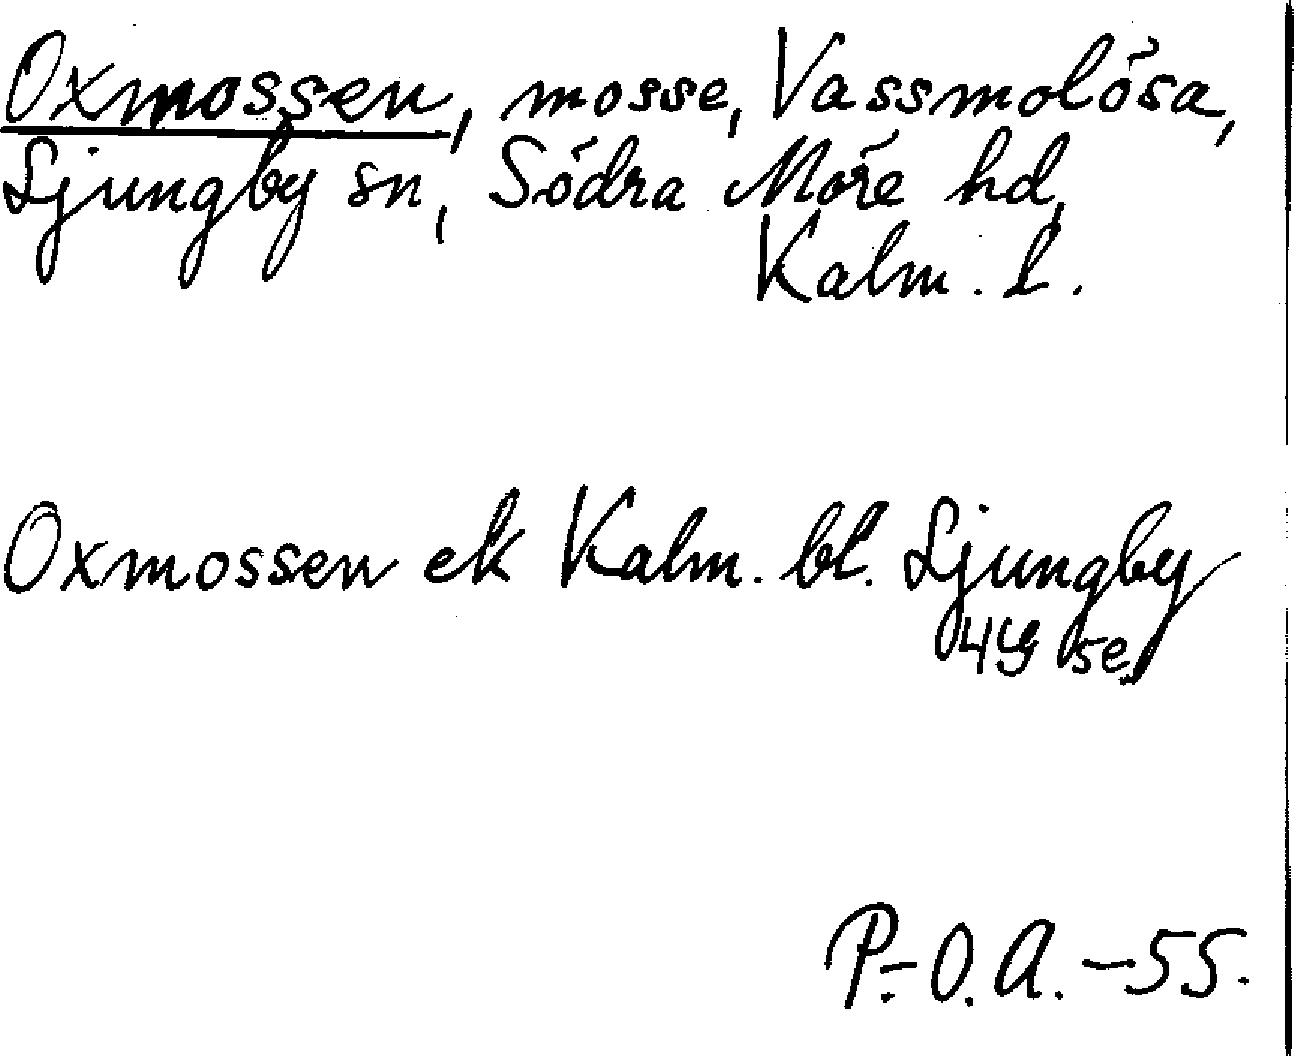 Oxmossen, mosse, Vassmolösa,
Ljungby sn, Södra Möre hd,
Kalm. l.
Oxmossen ek Kalm. bl. Ljungby
4g 5e
P.-O.A. -55.